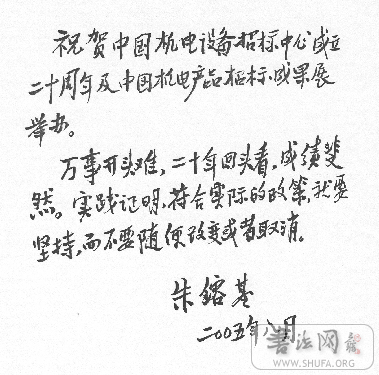 祝贺中国机电设备招标中心成立
二十周年及中国机电产品招标成果展
举办。
万事开头难，二十年回头看，成绩斐
然。实践证明，符合实际的政策，就要
坚持，而不要随便改变或者取消。
朱镕基
二〇〇五年八月
書法网
WWW.SHUFA.ORG